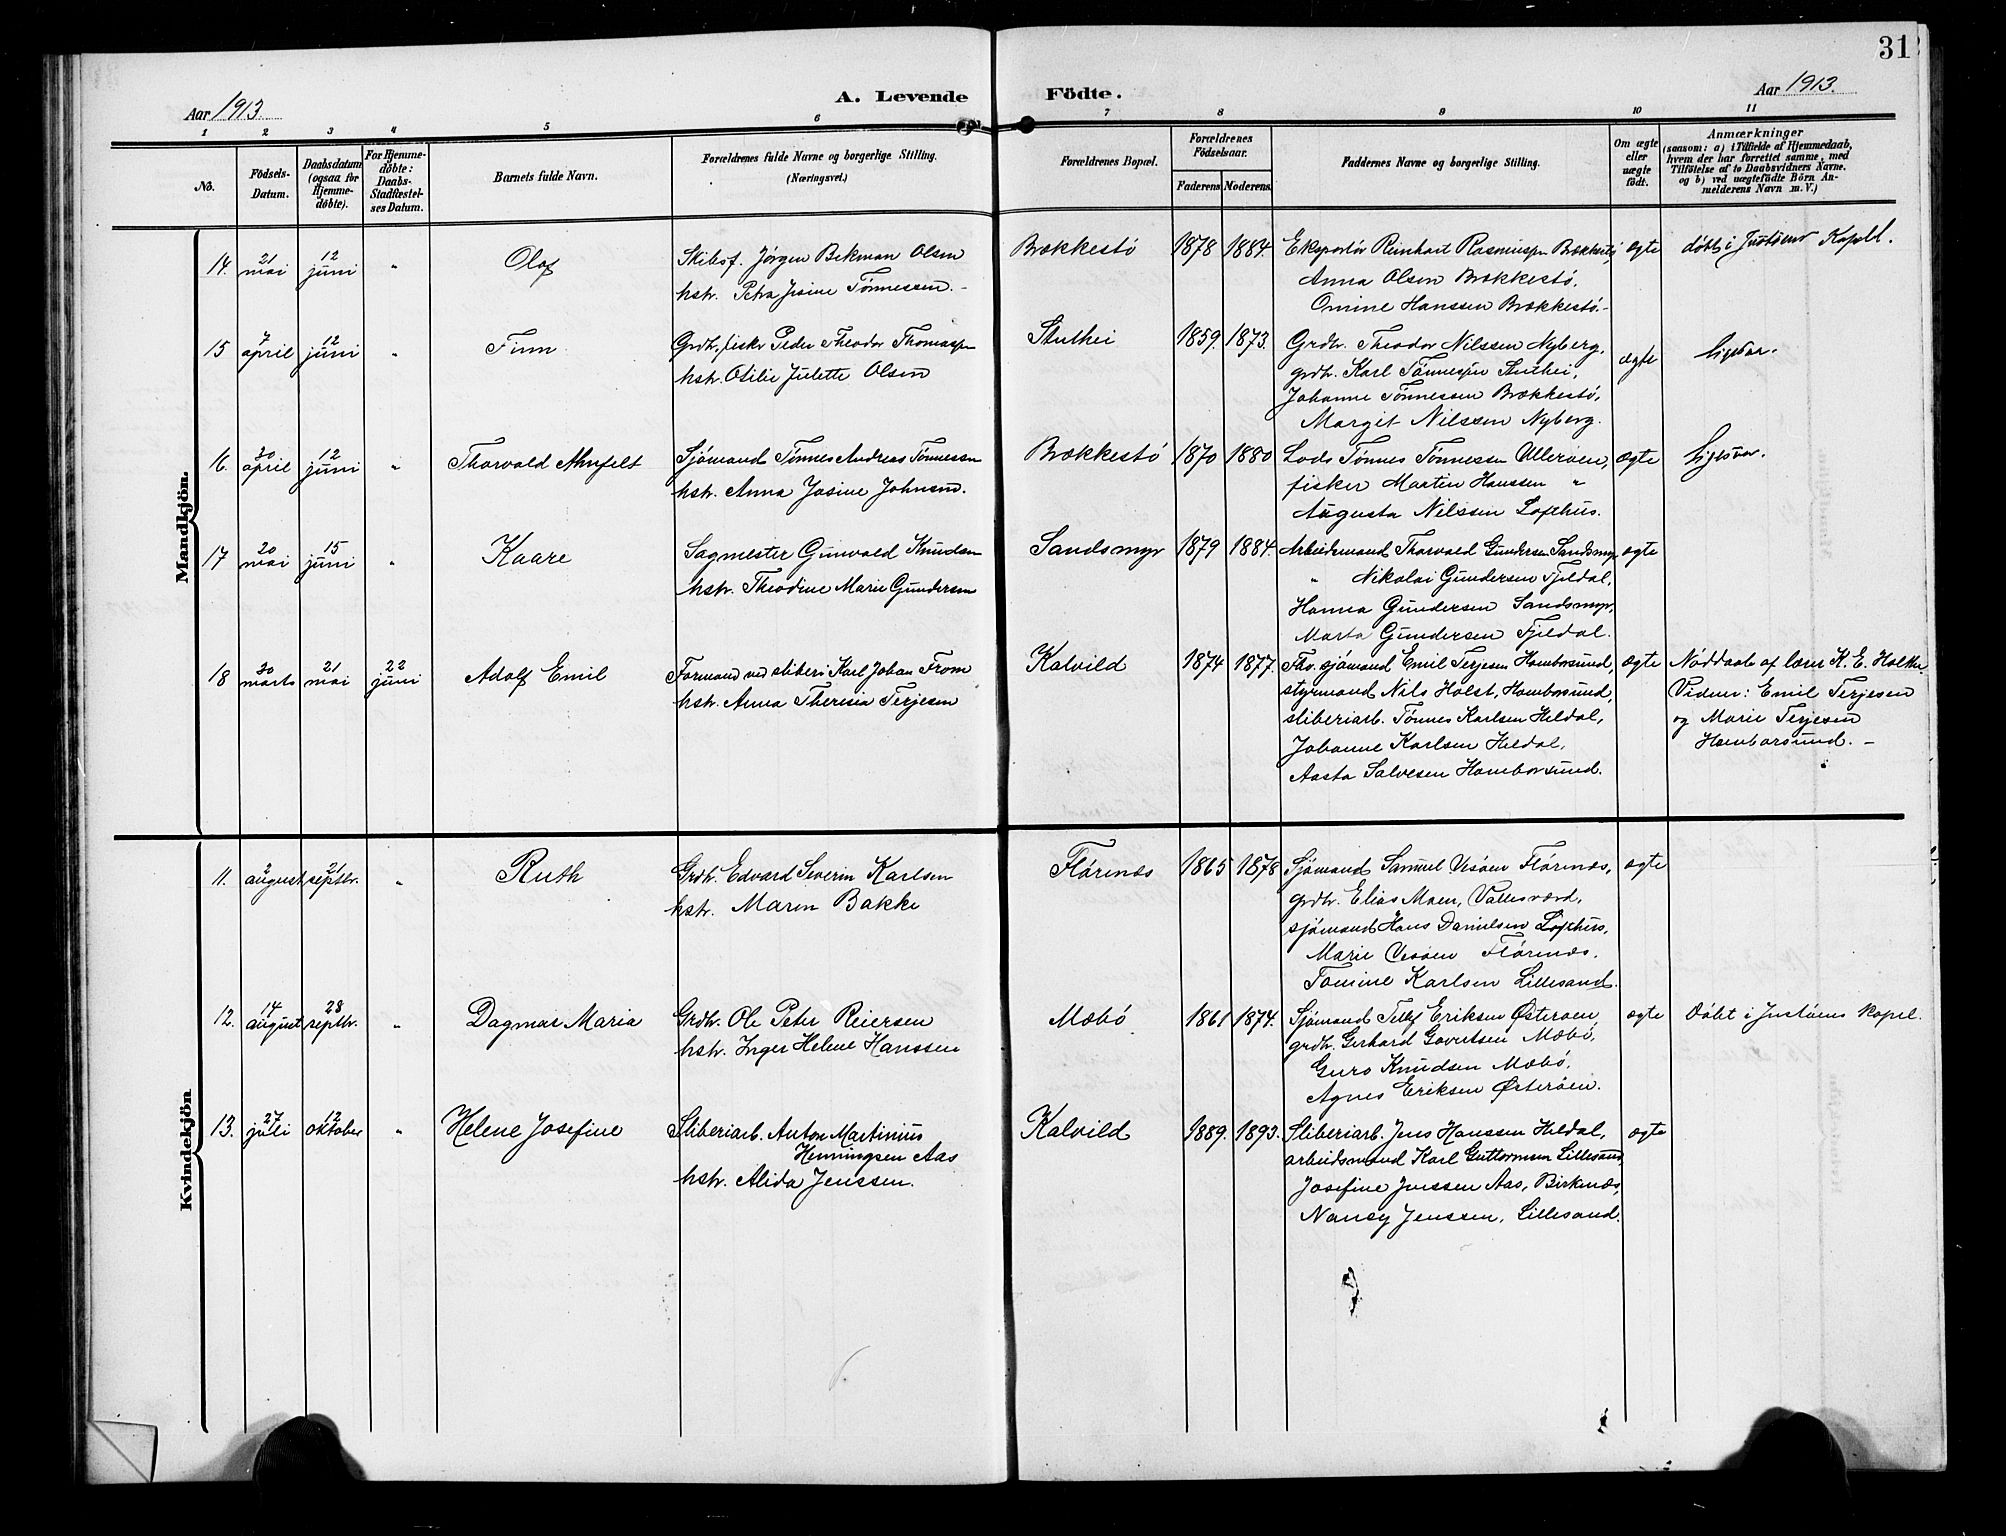 31
Aar 1913.
A. Levende Födte.
Aar 1913.
1 2 3 4 5 6 7 8 9 10 11
No.
Födsels-
Datum.
Daabsdatum
(ogsaa for
Hjemme-
döbte).
For Hjemme-
döbte:
Daabs-
Stadfestel-
ses Datum.
Barnets fulde Navn.
Forældrenes fulde Navne og borgerlige Stilling.
(Næringsvei.)
Forældrenes Bopæl.
Forældrenes
Födselsaar.
Faderens. Moderens.
Faddernes Navne og borgerlige Stilling.
Om ægte
eller
uægte
födt.
Anmærkninger
(saasom: a) i Tilfælde af Hjemmedaab,
hvem der har forrettet samme, med
Tilföielse af to Daabsvidners Navne.
og b) ved uægtefödte Börn An-
melderens Navn m. V.)
Mandkjön.
14. 21 mai 12 juni " Olaf
Skibsf. Jørgen Bekman Olsen
hstr. Petra Josine Tønnessen.
Brækkestø 1878 1884.
Eksportør Reinhart Rasmussen Brækkestø,
Anna Olsen Brækkestø,
Omine Hanssen Brækkestø.
ægte
døbt i Justøens Kapell.
15 7 april 12 juni " Finn
Grdbr., fisker Peder Theodor Thomassen
hstr. Otilie Julette Olsen
Stuthei 1859. 1873.
Grdbr. Theodor Nilssen Nyberg,
grdbr. Karl Tønnessen Stuthei,
Johanne Tønnessen Brækkestø,
Margit Nilssen Nyberg.
ægte
ligesaa.
16. 30 april 12 juni " Thorvald Ahnfelt
Sjømand Tønnes Andreas Tønnessen
hstr. Anna Josine Johnsen.
Brækkestø 1870 1880
Lods Tønnes Tønnessen Ulleröen,
fisker Martin Hanssen "
Augusta Nilssen Lofthus.
ægte
ligesaa.
17 20 mai 15 juni " Kaare
Sagmester Gunvald Knudsen
hstr. Theodine Marie Gundersen
Sandsmyr 1879 1884.
Arbeidsmand Thorvald Gundersen Sandsmyr,
" Nikolai Gundersen Fjeldal,
Hanna Gundersen Sandsmyr,
Marta Gundersen Fjeldal.
ægte
18 30 marts 21 mai 22 juni Adolf Emil
Formand ved sliberi Karl Johan From
hstr. Anna Theresia Terjesen
Kalvild 1874 1877.
Fhv. sjømand Emil Terjesen Homborsund,
styrmand Nils Holst, Homborsund,
sliberiarb. Tønnes Karlsen Heldal,
Johanne Karlsen Heldal,
Aasta Salvesen Homborsund.
ægte
Nøddaab af lærer K. E.
Vidner: Emil Terjesen
og Marie Terjesen
Homborsund. —
Kvindekjön
11. 2 august 21 septbr. " Ruth
Grdbr. Edvard Severin Karlsen
hstr. Maren Bakke
Flørenæs 1865 1878
Sjømand Samuel Vesøen Flørenæs,
grdbr. Elias Moen, Vallesværd,
sjømand Hans Danielsen Lofthus,
Marie Vesøen Flørenæs.
Tomine Karlsen Lillesand.
ægte
12. 14 august 28 septbr. " Dagmar Maria
Grdbr. Ole Peter Reiersen
hstr. Inger Helene Hanssen
Mæbø 1861 1874.
Sjømand Tellef Eriksen Østerøen,
grdbr. Gerhard Govertsen Mæbø,
Guro Knudsen Mæbø,
Agnes Eriksen Østerøen.
ægte
Døbt i Justøens Kapel.
13. 27 juli 12 oktober " Helene Josefine
Sliberiarb. Anton Martinius
Henningsen Aas
hstr. Alida Jenssen.
Kalvild 1889. 1893.
Sliberiarb. Jens Hanssen Heldal,
arbeidsmand Karl Guttormsen Lillesand,
Josefine Jenssen Aas, Birkenæs,
Nancy Jenssen, Lillesand.
ægte